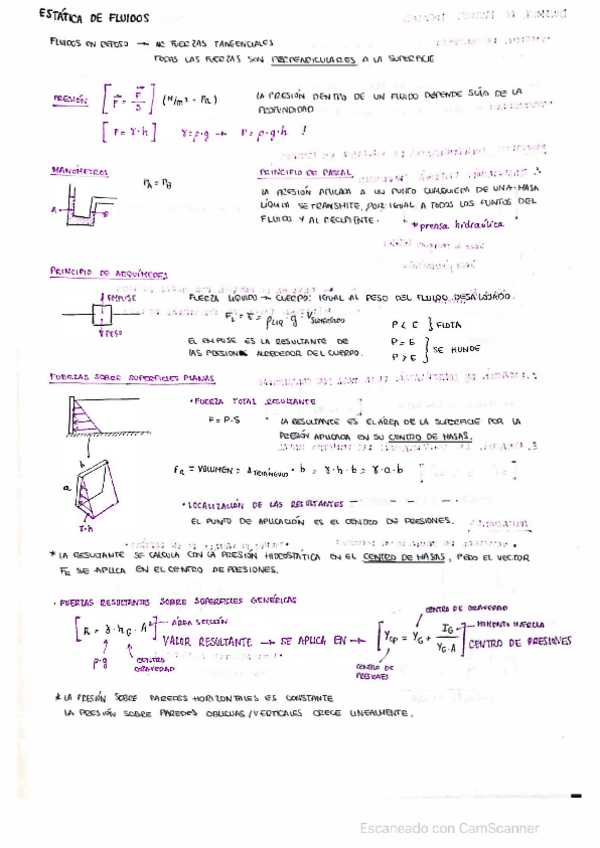 ESTÁTICA DE FLUIDOS
FLUIDOS EN REPOSO → NO FUERZAS TANGENCIALES
TODAS LAS FUERZAS SON PERPENDICULARES A LA SUPERFICIE
PRESIÓN [P = F/S] (N/m² = Pa)
LA PRESIÓN DENTRO DE UN FLUIDO DEPENDE SÓLO DE LA
PROFUNDIDAD
[P = γ·h] γ=ρ·g → P = ρ·g·h !
MANÓMETROS PA = PB
A B
PRINCIPIO DE PASCAL
LA PRESIÓN APLICADA A UN PUNTO CUALQUIERA DE UNA MASA
LÍQUIDA SE TRANSMITE POR IGUAL A TODOS LOS PUNTOS DEL
FLUIDO Y AL RECIPIENTE.
* prensa hidráulica
PRINCIPIO DE ARQUÍMEDES
EMPUJE
PESO
FUERZA LÍQUIDO → CUERPO: IGUAL AL PESO DEL FLUIDO DESALOJADO.
FL = E = ρLIQ · g · VSUMERGIDO
EL EMPUJE ES LA RESULTANTE DE
LAS PRESIONES ALREDEDOR DEL CUERPO.
P < E } FLOTA
P = E
P > E } SE HUNDE
FUERZAS SOBRE SUPERFICIES PLANAS
• FUERZA TOTAL RESULTANTE
F = P·S
* LA RESULTANTE ES EL ÁREA DE LA SUPERFICIE POR LA
PRESIÓN APLICADA EN SU CENTRO DE MASAS.
b
a
γ·h
FR = VOLUMEN = ATRIÁNGULO · b = γ·h·b = γ·a·b
• LOCALIZACIÓN DE LAS RESULTANTES
EL PUNTO DE APLICACIÓN ES EL CENTRO DE PRESIONES.
* LA RESULTANTE SE CALCULA CON LA PRESIÓN HIDROSTÁTICA EN EL CENTRO DE MASAS, PERO EL VECTOR
FR SE APLICA EN EL CENTRO DE PRESIONES.
• FUERZAS RESULTANTES SOBRE SUPERFICIES GENÉRICAS
[R = γ·hG·A] → ÁREA SECCIÓN
ρ·g
CENTRO
GRAVEDAD
VALOR RESULTANTE → SE APLICA EN → [YCP = YG + IG/(YG·A)]
CENTRO DE GRAVEDAD
MOMENTO INERCIA
CENTRO DE PRESIONES
CENTRO DE
PRESIONES
* LA PRESIÓN SOBRE PAREDES HORIZONTALES ES CONSTANTE
LA PRESIÓN SOBRE PAREDES OBLICUAS/VERTICALES CRECE LINEALMENTE.
Escaneado con CamScanner